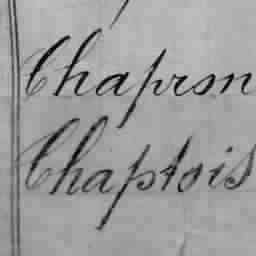 Chapron
Chaptois